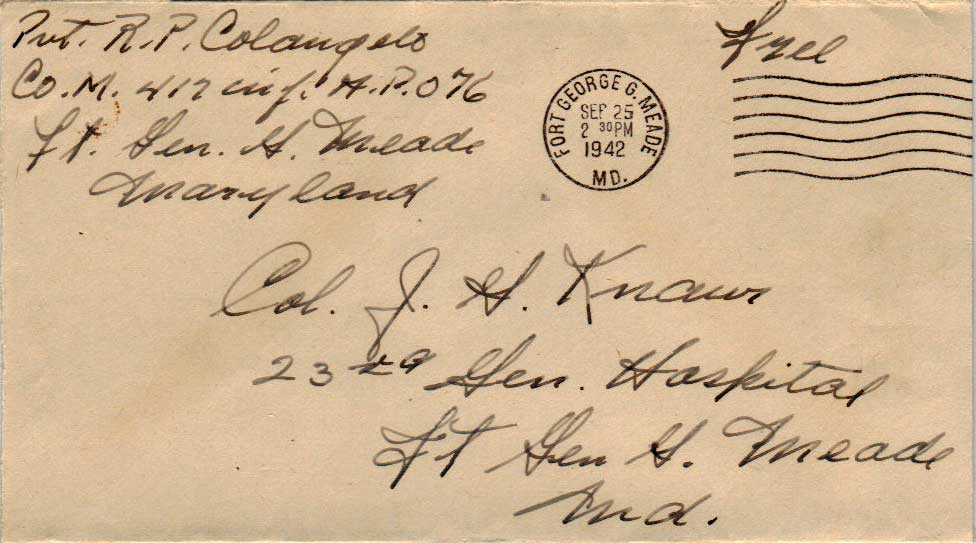 Pvt. R. P. Colangelo
Co. M. 417 inf. A.P.O 76
Ft. Geo. G. Meade
Maryland
Free
FORT GEORGE G. MEADE
SEP 25
2 30 PM
1942
MD.
Col. J. H. Knauss
23rd Gen. Hospital
Ft Geo G. Meade
Md.